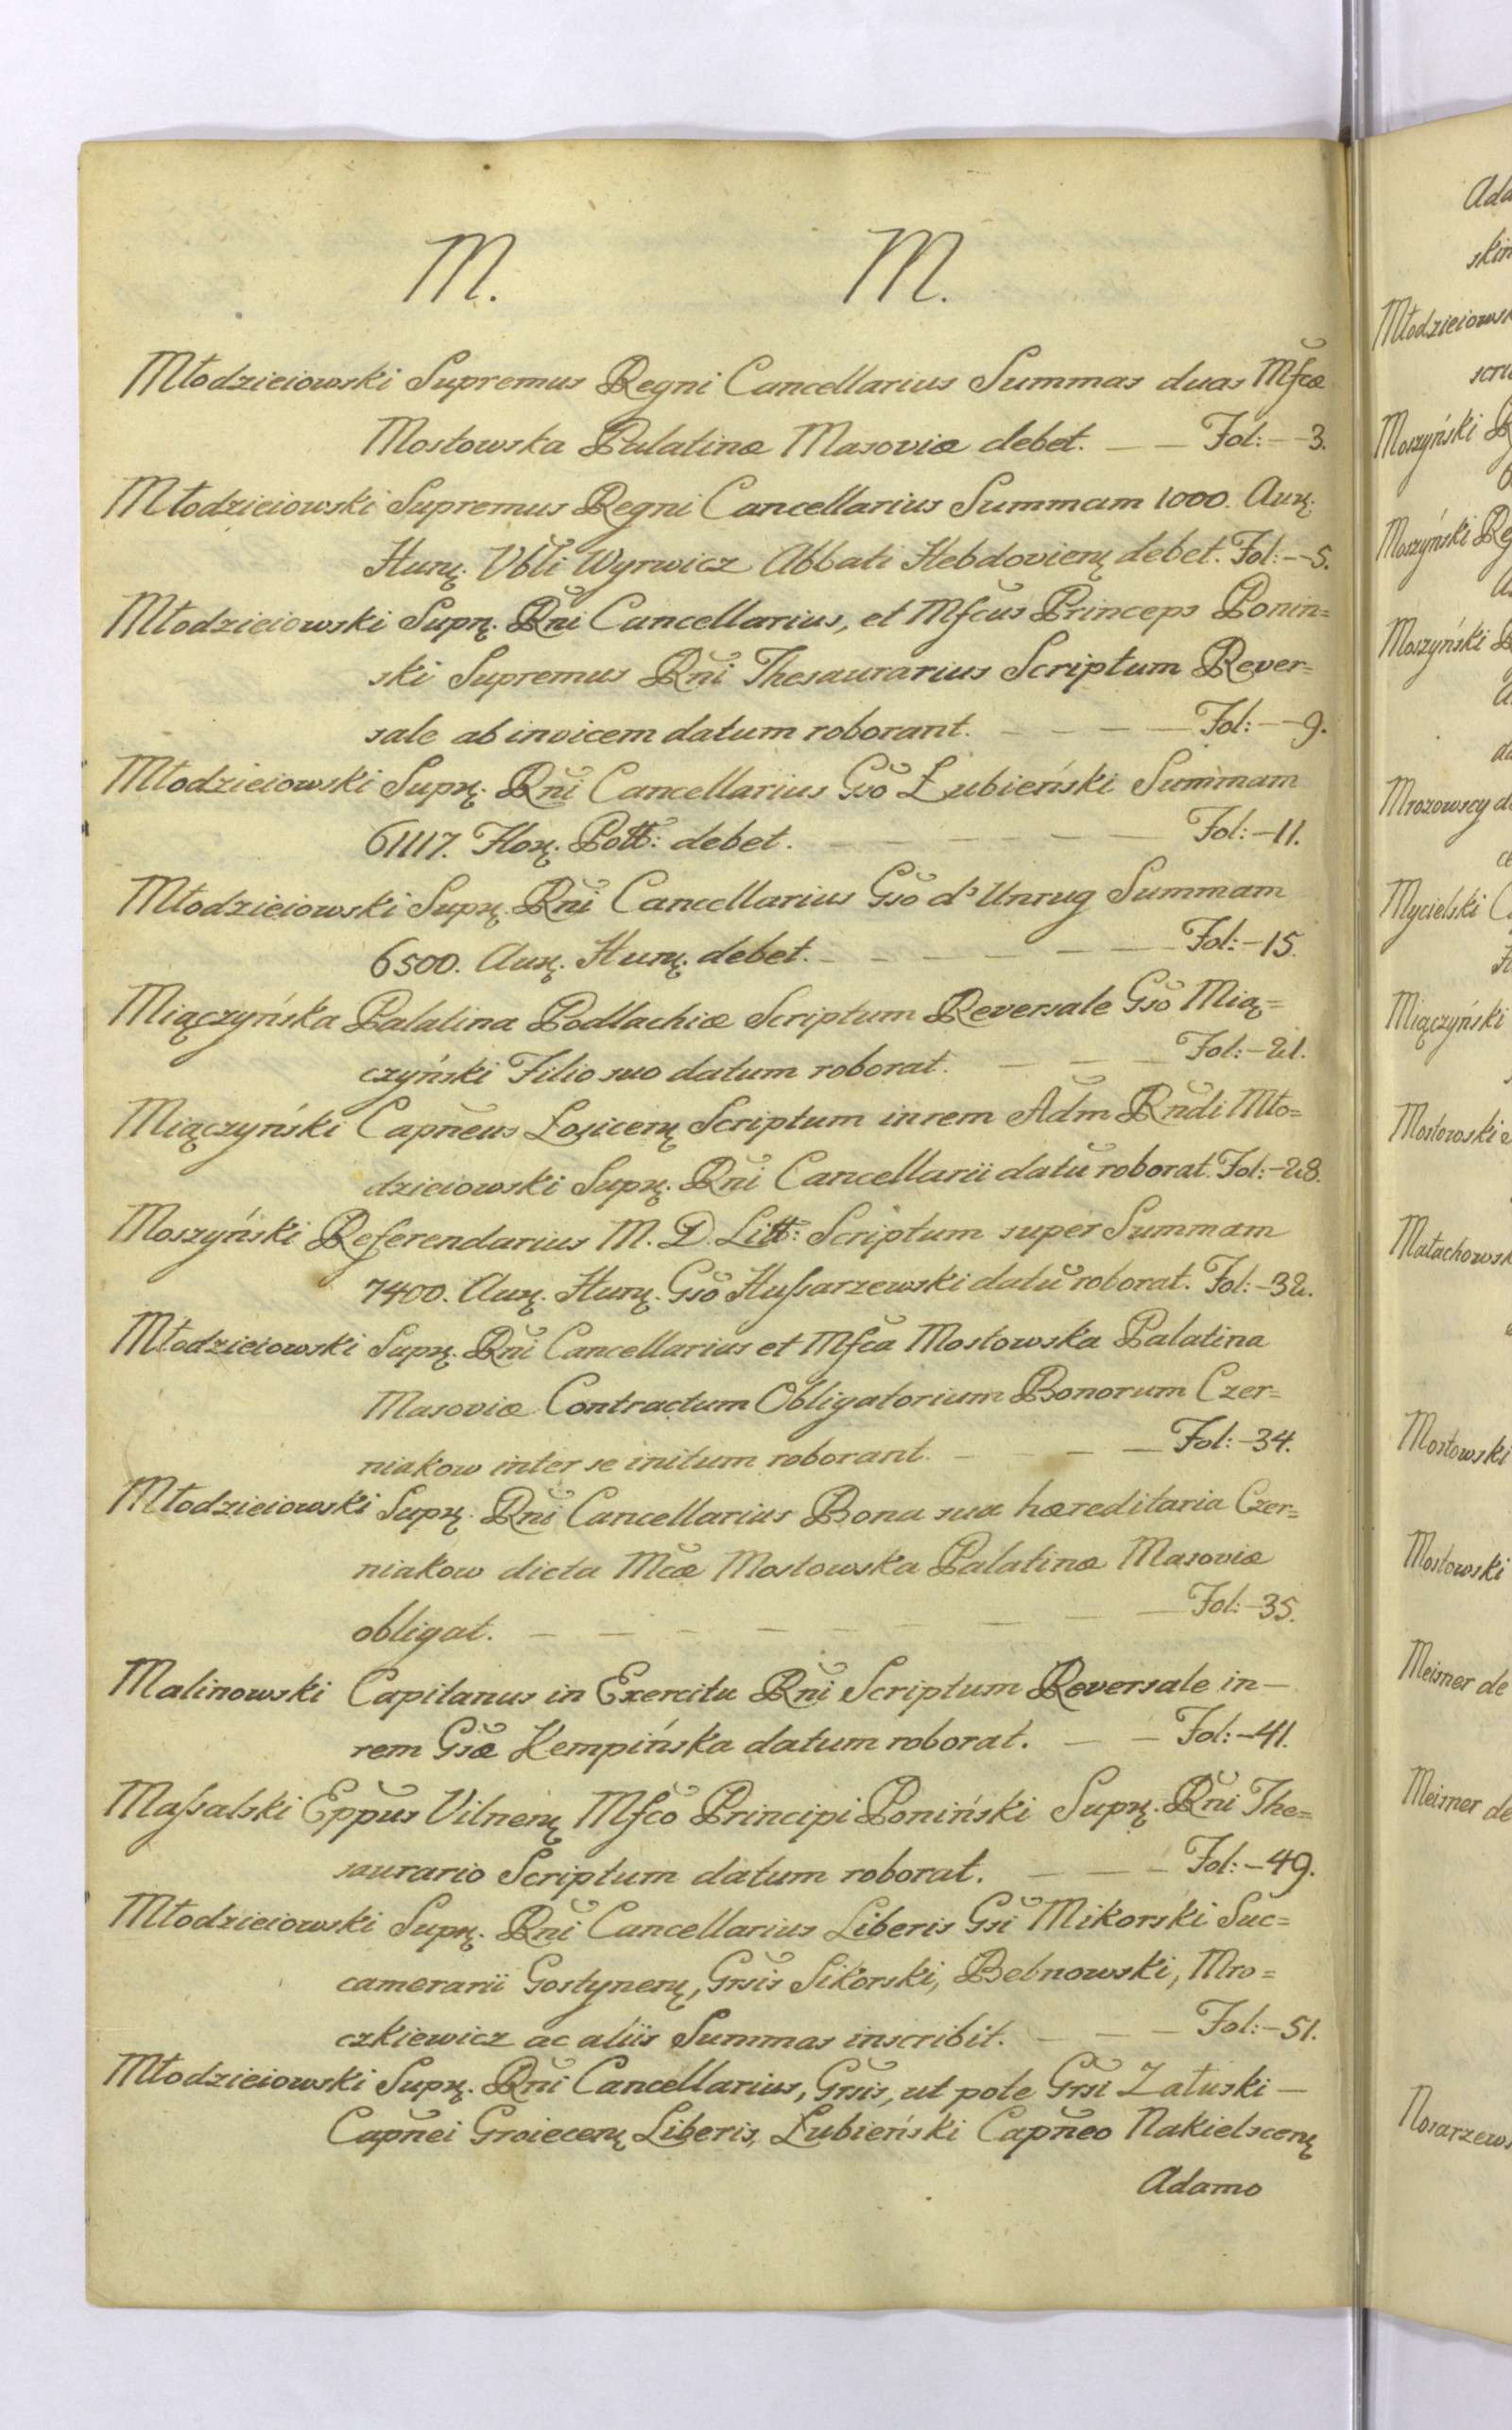 M. M.
Młodzieiowski Supremus Regni Cancellarius Summas duas Mfcæ
Mostowska Palatinæ Masoviæ debet. — — Fol: — 3.
Młodzieiowski Supremus Regni Cancellarius Summam 1000. Aurꝝ.
Hunꝝ. Vbli Wyrwicz Abbati Hebdovienꝝ debet. Fol: — 5.
Młodzieiowski Supꝝ. Rni Cancellarius, et Mfcus Princeps Ponin=
ski Supremus Rni Thesaurarius Scriptum Rever=
sale ab invicem datum roborant. — — — — Fol: — 9.
Młodzieiowski Supꝝ. Rni Cancellarius Gso Łubieński Summam
61117. Florꝝ. Poll: debet. — — — — Fol: — 11.
Młodzieiowski Supꝝ. Rni Cancellarius Gso d'Unrug Summam
6500. Aurꝝ. Hunꝝ. debet. — — — — Fol: — 15.
Miączyńska Palatina Podlachiæ Scriptum Reversale Gso Mią=
czyński Filio suo datum roborat. — — — Fol: — 21.
Miączyński Capneus Łosicenꝝ Scriptum in rem Adm Rndi Mło=
dzieiowski Supꝝ. Rni Cancellarii datu roborat. Fol: — 28.
Moszyński Referendarius M. D. Litt: Scriptum super Summam
7400. Aurꝝ. Hunꝝ. Gso Hussarzewski datu roborat. Fol: — 32.
Młodzieiowski Supꝝ. Rni Cancellarius et Mfca Mostowska Palatina
Masoviæ Contractum Obligatorium Bonorum Czer=
niakow inter se initum roborant. — — — Fol: — 34.
Młodzieiowski Supꝝ. Rni Cancellarius Bona sua hæreditaria Czer=
niakow dicta Mcæ Mostowska Palatinæ Masoviæ
obligat. — — — — — — — Fol: — 35.
Malinowski Capitanus in Exercitu Rni Scriptum Reversale in —
rem Gsæ Kempińska datum roborat. — — Fol: — 41.
Massalski Eppus Vilnenꝝ Mfco Principi Poniński Supꝝ. Rni The=
saurario Scriptum datum roborat. — — — Fol: — 49.
Młodzieiowski Supꝝ. Rni Cancellarius Liberis Gsi Mikorski Suc=
camerarii Gostynenꝝ, Grsis Sikorski, Bebnowski, Mro=
czkiewicz ac aliis Summas inscribit. — — — Fol: — 51.
Młodzieiowski Supꝝ. Rni Cancellarius, Grsis, ut pote Grsi Załuski —
Capnei Groiecenꝝ Liberis, Łubieński Capneo Nakielscenꝝ
Adamo
Młodzieiows
Moszyński
Moszyński
Moszyński
Mrozowscy
Mycielski
Miączyński
Mostowski
Małachowsk
Mostowski
Mostowski
Meisner de
Meisner de
Nosarzews